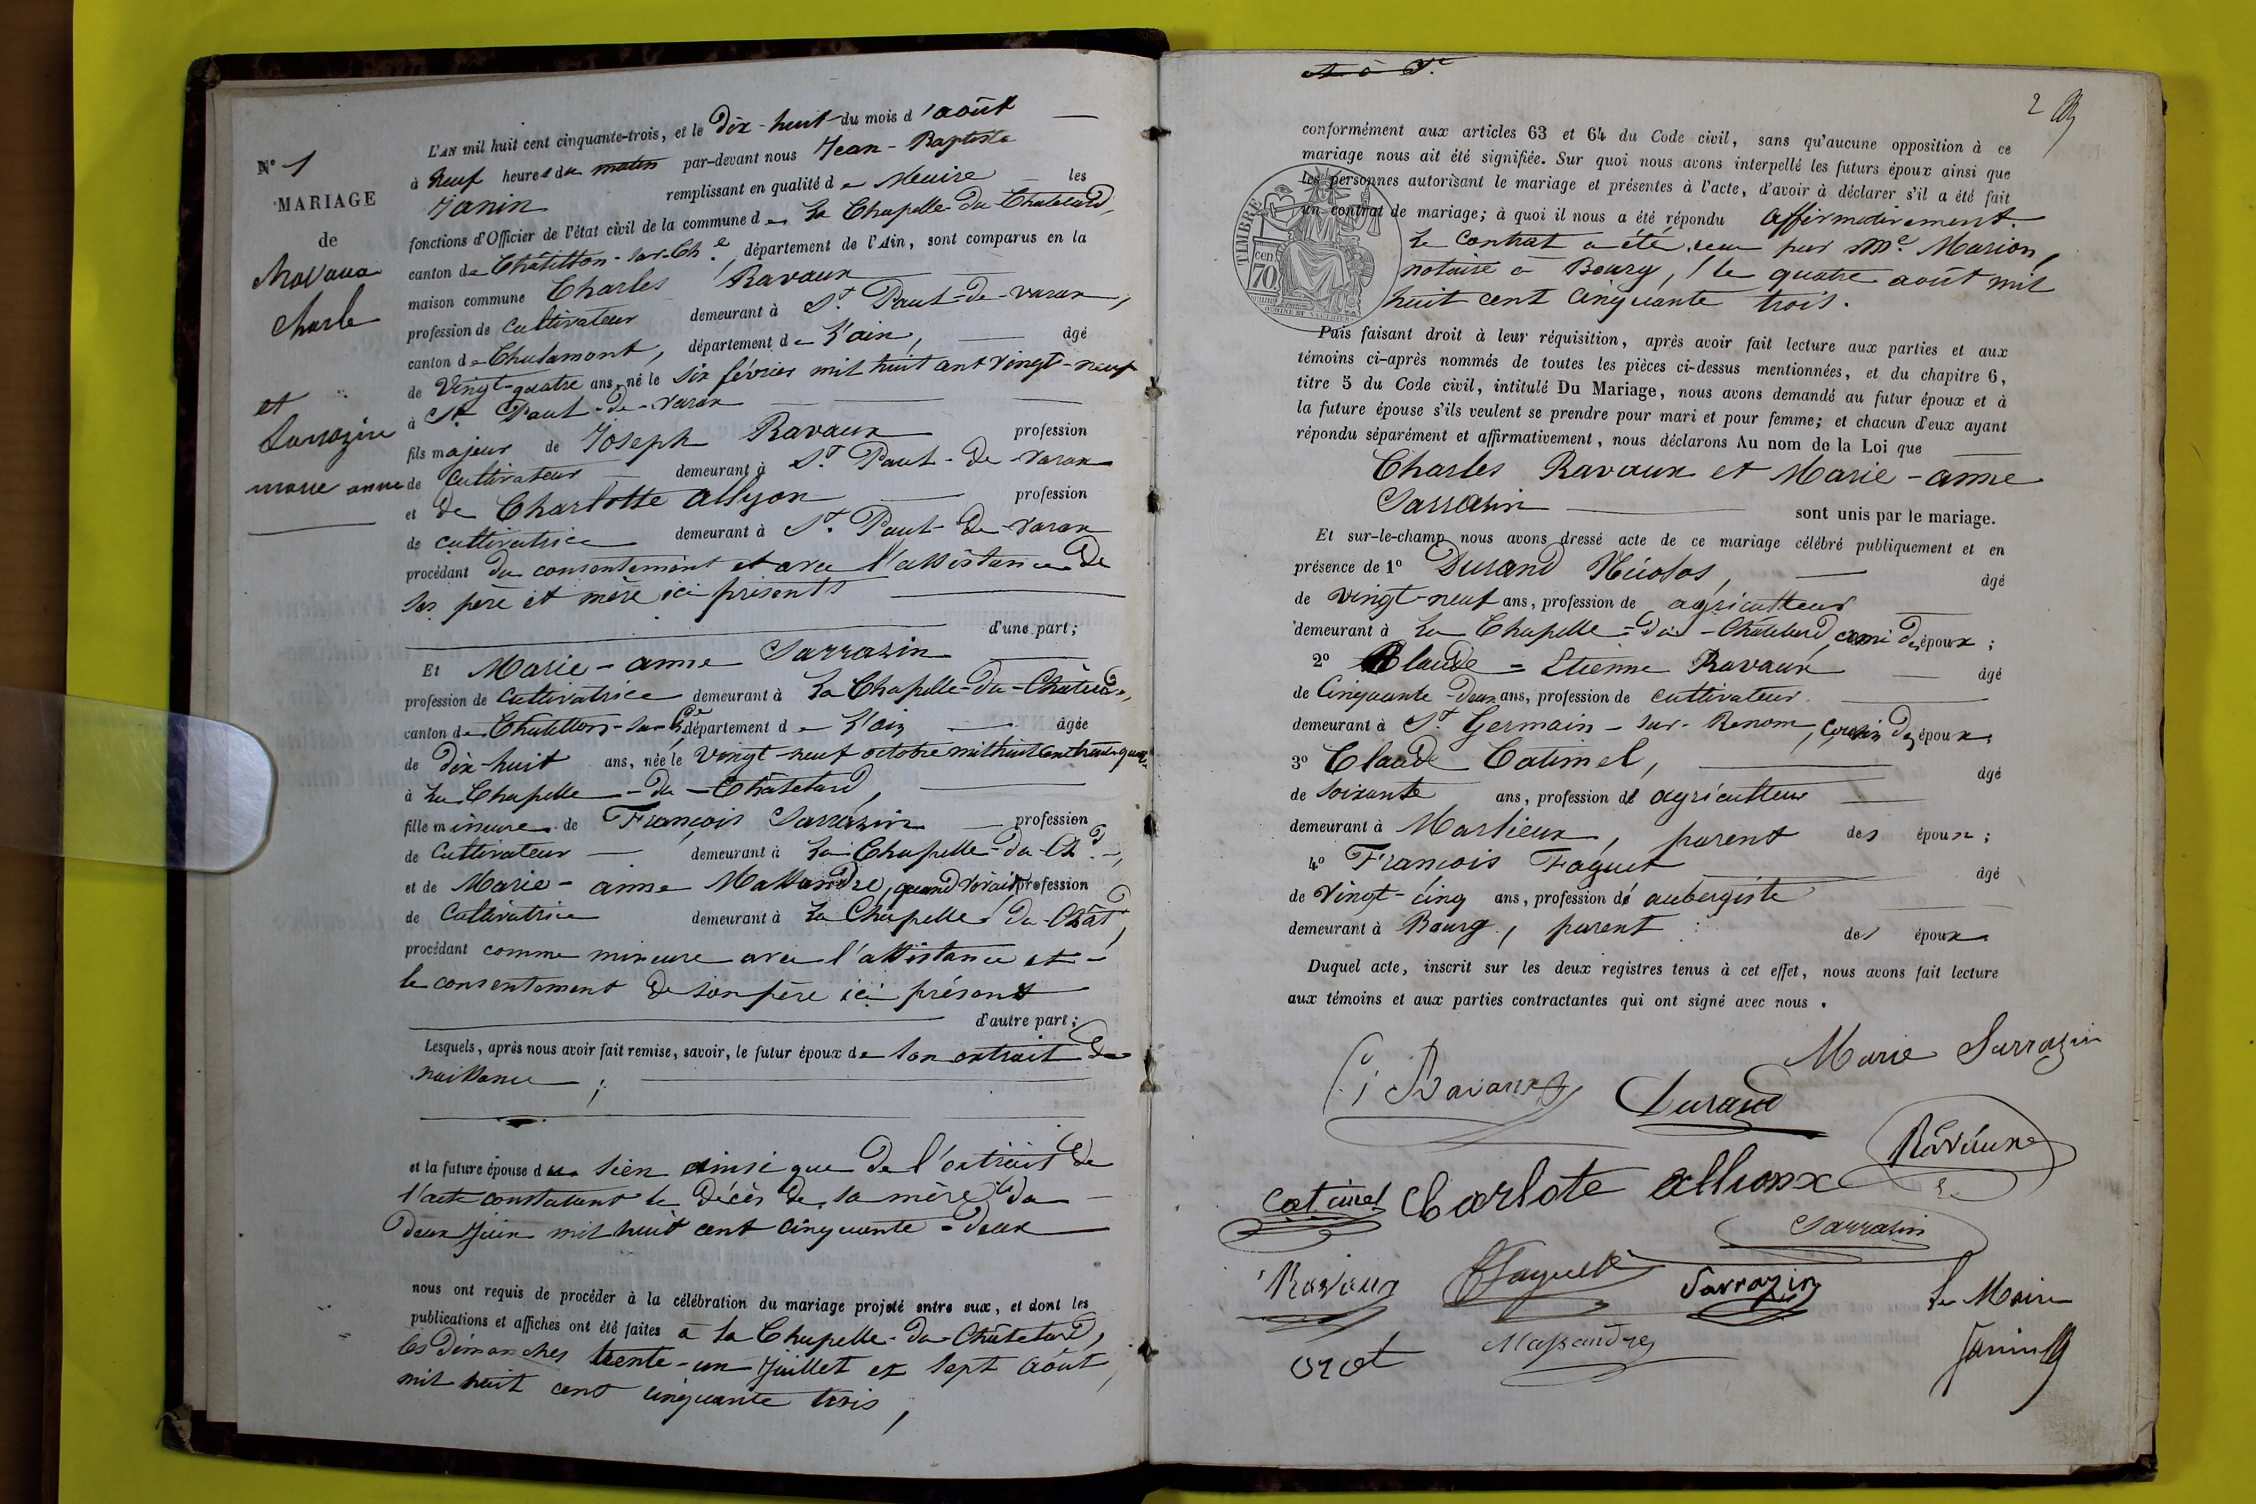 N° 1
MARIAGE
de
Ravaux
Charle
et
Sarrazin
marie anne
L'AN mil huit cent cinquante-trois, et le Dix-huit du mois d'août
à Neuf heures du matin par-devant nous Jean-Baptiste
Janin remplissant en qualité de Maire les
fonctions d'Officier de l'état civil de la commune de La Chapelle-du-Chatelard,
canton de Châtillon-sur-Ch.e, département de l'Ain, sont comparus en la
maison commune Charles Ravaux
profession de cultivateur demeurant à St Paul-de-varax,
canton de Chalamont, département de L'ain, âgé
de Vingt-quatre ans, né le six février mil huit cent vingt-neuf
à St. Paul-de-varax
fils majeur de Joseph Ravaux profession
de Cultivateur demeurant à St. Paul-de-varax
et de Charlotte allyon profession
de cultivatrice demeurant à St. Paul-de-varax
procédant du consentement et avec l'assistance de
ses père et mère ici présents
d'une part;
Et Marie-anne Sarrazin
profession de cultivatrice demeurant à La Chapelle-du-Châtelard,
canton de Chatillon-sur-Ch.e département de L'ain âgée
de dix-huit ans, née le vingt-neuf octobre mil huit cent trente-quatre
à La Chapelle-du-Châtelard,
fille mineure de François Sarrazin profession
de Cultivateur demeurant à La Chapelle-du-Ch.d,
et de Marie-anne Massandre, quand vivait profession
de Cultivatrice demeurant à La Chapelle-du-Chât,
procédant comme mineure avec l'assistance et
le consentement de son père ici présent
d'autre part;
Lesquels, après nous avoir fait remise, savoir, le futur époux de son extrait de
naissance;
et la future épouse du sien ainsi que de l'extrait de
l'acte constatant le décès de sa mère du
deux Juin mil huit cent cinquante-deux
nous ont requis de procéder à la célébration du mariage projeté entre eux, et dont les
publications et affiches ont été faites à La Chapelle-du-Châtelard,
les Dimanches trente-un Juillet et sept août
mil huit cent cinquante trois,
2
conformément aux articles 63 et 64 du Code civil, sans qu'aucune opposition à ce
mariage nous ait été signifiée. Sur quoi nous avons interpellé les futurs époux ainsi que
les personnes autorisant le mariage et présentes à l'acte, d'avoir à déclarer s'il a été fait
un contrat de mariage; à quoi il nous a été répondu affirmativement.
TIMBRE
cen
70.
Le contrat a été reçu par Me. Marion,
notaire à Bourg, le quatre août mil
huit cent cinquante trois.
Puis faisant droit à leur réquisition, après avoir fait lecture aux parties et aux
témoins ci-après nommés de toutes les pièces ci-dessus mentionnées, et du chapitre 6,
titre 5 du Code civil, intitulé Du Mariage, nous avons demandé au futur époux et à
la future épouse s'ils veulent se prendre pour mari et pour femme; et chacun d'eux ayant
répondu séparément et affirmativement, nous déclarons Au nom de la Loi que
Charles Ravaux et Marie-anne
Sarrasin sont unis par le mariage.
Et sur-le-champ nous avons dressé acte de ce mariage célébré publiquement et en
présence de 1° Durand Nicolas, âgé
de vingt-neuf ans, profession de agriculteur
demeurant à La Chapelle-du-Chatelard, ami des époux;
2° Claude-Etienne Ravaux âgé
de Cinquante-deux ans, profession de cultivateur
demeurant à St. Germain-sur-Renom, Cousin des époux;
3° Claude Catimel, âgé
de soixante ans, profession d'agriculteur
demeurant à Marlieux, parent des époux;
4° François Faguet âgé
de Vingt-cinq ans, profession d'aubergiste
demeurant à Bourg, parent des époux
Duquel acte, inscrit sur les deux registres tenus à cet effet, nous avons fait lecture
aux témoins et aux parties contractantes qui ont signé avec nous.
Marie Sarrazin
C. Ravaux
Durand
Ravaux
Catimel
Charlote allionx
Sarrasin
Ravaux
Faguet
Sarrazin
Le Maire
orot
Massandre
Janin